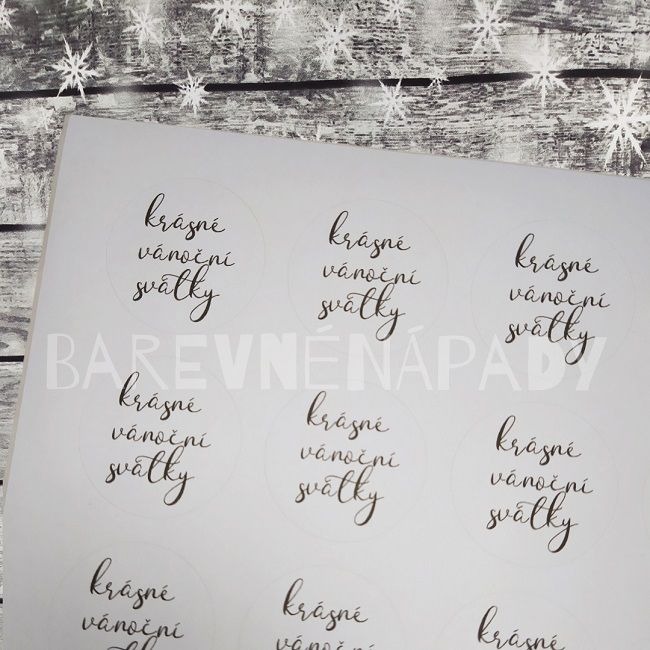 krásné
vánoční
svátky
krásné
vánoční
svátky
krásné
vánoční
svátky
BAREVNÉNÁPADY
krásné
vánoční
svátky
krásné
vánoční
svátky
krásné
vánoční
svátky
krásné
vánoční
svátky
krásné
vánoční
krásné